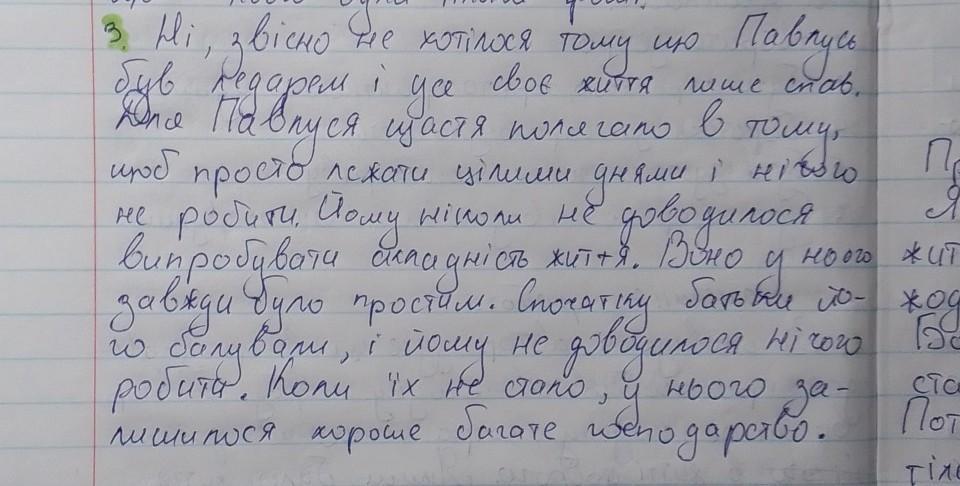 3. Ні, звісно не хотілося тому що Павлусь
був ледарем і усе своє життя лише спав.
Для Павлуся щастя полягало в тому,
щоб просто лежати цілими днями і нічого
не робити. Йому ніколи не доводилося
випробувати складність життя. Воно у нього
завжди було простим. Спочатку батьки йо-
го балували, і йому не доводилося нічого
робити. Коли їх не стало, у нього за-
лишилося хороше багате господарство.
Пр
Я
жит
жод
Во
ста
Пот
тіль